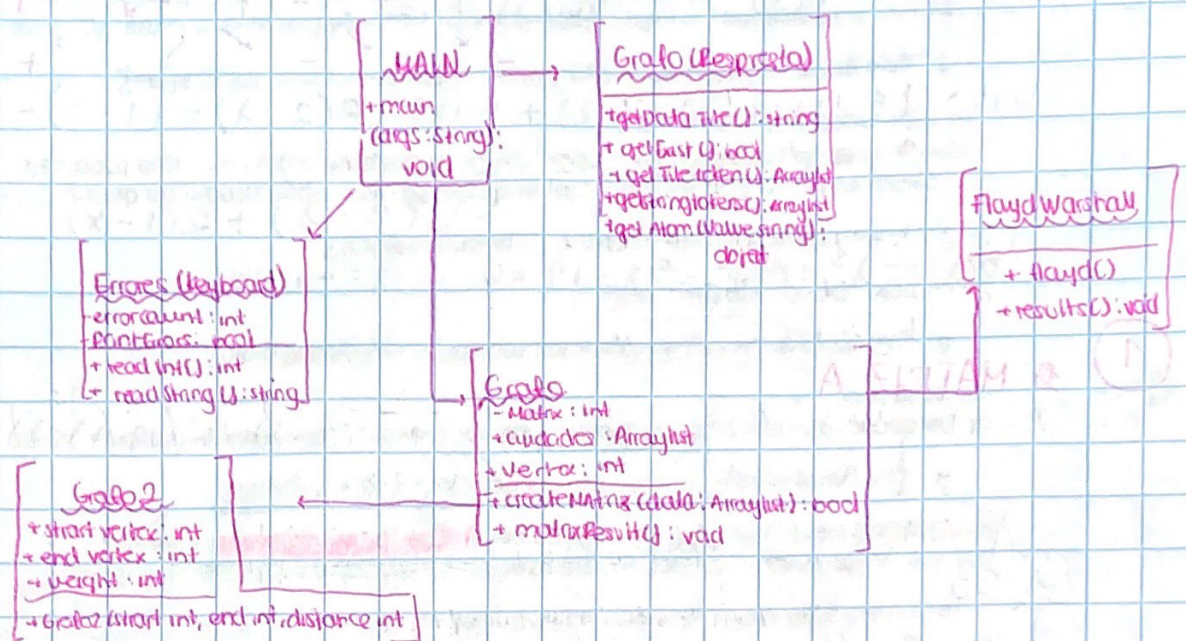 MAIN
+main
(args:String):
void
Grafo (Respresta)
+getData File():string
+ getLast():bool
+ get File token(): Arraylist
+getstringtokens():arraylist
+get Atom (Value string):
floyd Warshall
+ floyd()
+results(): void
Errores (Keyboard)
errorcount: int
printErrors: bool
+ read Int(): int
+ read String(): string
Grafo
- Matrix: int
+ciudades: Arraylist
+ vertex: int
+ createMatrix (data: Arraylist): bool
+ matrixResult(): void
Grafo 2
+ start vertex: int
+ end vertex: int
+ weight: int
+Grafo2 (start int, end int, distance int
1
MATRIZ A